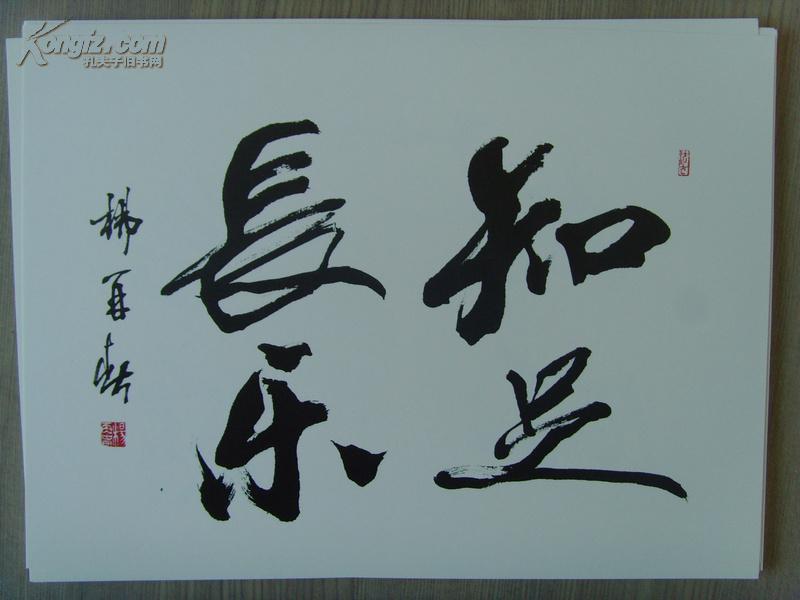 知足
長乐
杨再春
Kongfz.com
孔夫子旧书网